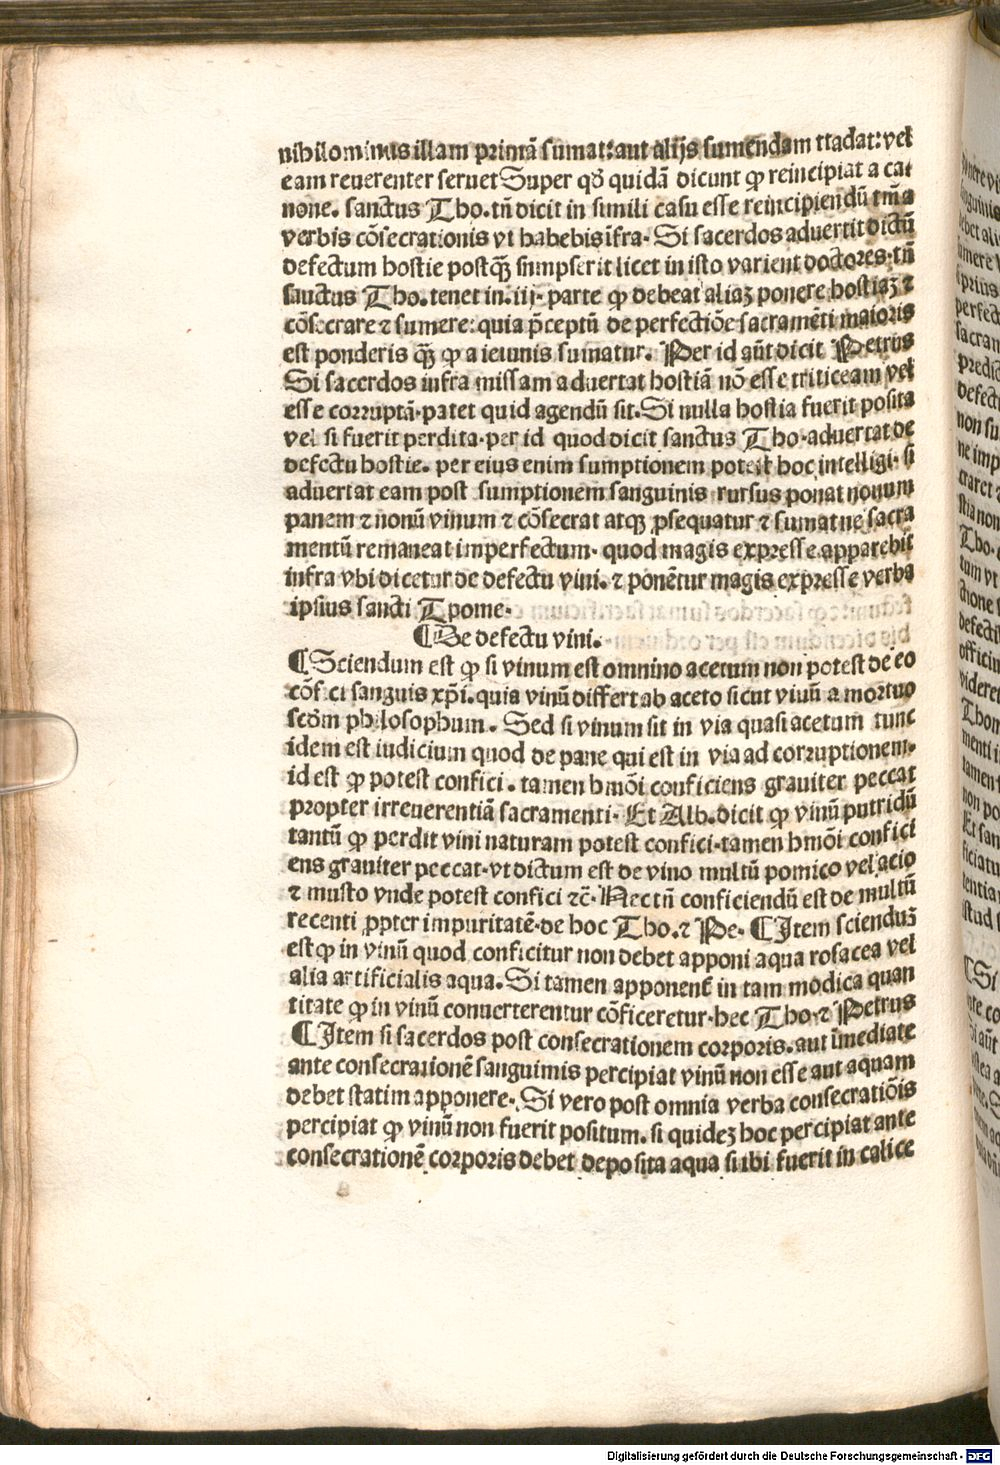 nihilominus illam primā sumat: aut alijs sumendam ttadat: vel
eam reuerenter seruet Super qđ quidā dicunt ꝙ reincipiat a ca⸗
none. sanctus Tho. tñ dicit in simili casu esse reincipiendū tm̄ a
verbis cōsecrationis vt habebis īfra. Si sacerdos aduertit dictū
defectum hostie postq̄ꝫ sumpserit licet in isto varient doctores. tñ
sanctus Tho. tenet in. iij. parte ꝙ debeat aliaꝫ ponere hostiaꝫ ⁊
cōsecrare ⁊ sumere: quia p̄ceptū de perfectiōe sacramēti maioris
est ponderis q̄ꝫ ꝙ a ieiunis sumatur. Per id aūt dicit Petrus
Si sacerdos infra missam aduertat hostiā nō esse triticeam vel
esse corruptā. patet quid agendū sit. Si nulla hostia fuerit posita
vel si fuerit perdita. per id quod dicit sanctus Tho. aduertat de
defectu hostie. per eius enim sumptionem poterit hoc intelligi. si
aduertat eam post sumptionem sanguinis rursus ponat nouum
panem ⁊ nouū vinum ⁊ cōsecrat atqꝫ ꝓsequatur ⁊ sumat ne sacra
mentū remaneat imperfectum. quod magis expresse apparebit
infra vbi dicetur de defectu vini. ⁊ ponētur magis expresse verba
ipsius sancti Tpome.
¶ De defectu vini.
¶ Sciendum est ꝙ si vinum est omnino acetum non potest de eo
cōfici sanguis xp̄i. quia vinū differt ab aceto sicut viuū a mortuo
scđm philosophum. Sed si vinum sit in via quasi acetum tunc
idem est iudicium quod de pane qui est in via ad corruptionem.
id est ꝙ potest confici. tamen hmōi conficiens grauiter peccat
propter irreuerentiā sacramenti. Et Alb. dicit ꝙ vinū putridū
tantū ꝙ perdit vini naturam potest confici. tamen hmōi confici
ens grauiter peccat. vt dictum est de vino multū pomico vel acio
⁊ musto vnde potest confici ⁊c̄. Nec tñ conficiendū est de multū
recenti ꝓpter impuritatē. de hoc Tho. ⁊ Pe. ¶ Item sciendūꝫ
est ꝙ in vinū quod conficitur non debet apponi aqua rosacea vel
alia artificialis aqua. Si tamen apponent᷑ in tam modica quan
titate ꝙ in vinū conuerterentur cōficeretur. hec Tho. ⁊ Petrus
¶ Item si sacerdos post consecrationem corporis. aut īmediate
ante consecrationē sanguimis percipiat vinū non esse aut aquam
debet statim apponere. Si vero post omnia verba consecratiōis
percipiat ꝙ vinū non fuerit positum. si quideꝫ hoc percipiat ante
consecrationē corporis debet deposita aqua si ibi fuerit in calice
Digitalisierung gefördert durch die Deutsche Forschungsgemeinschaft - DFG